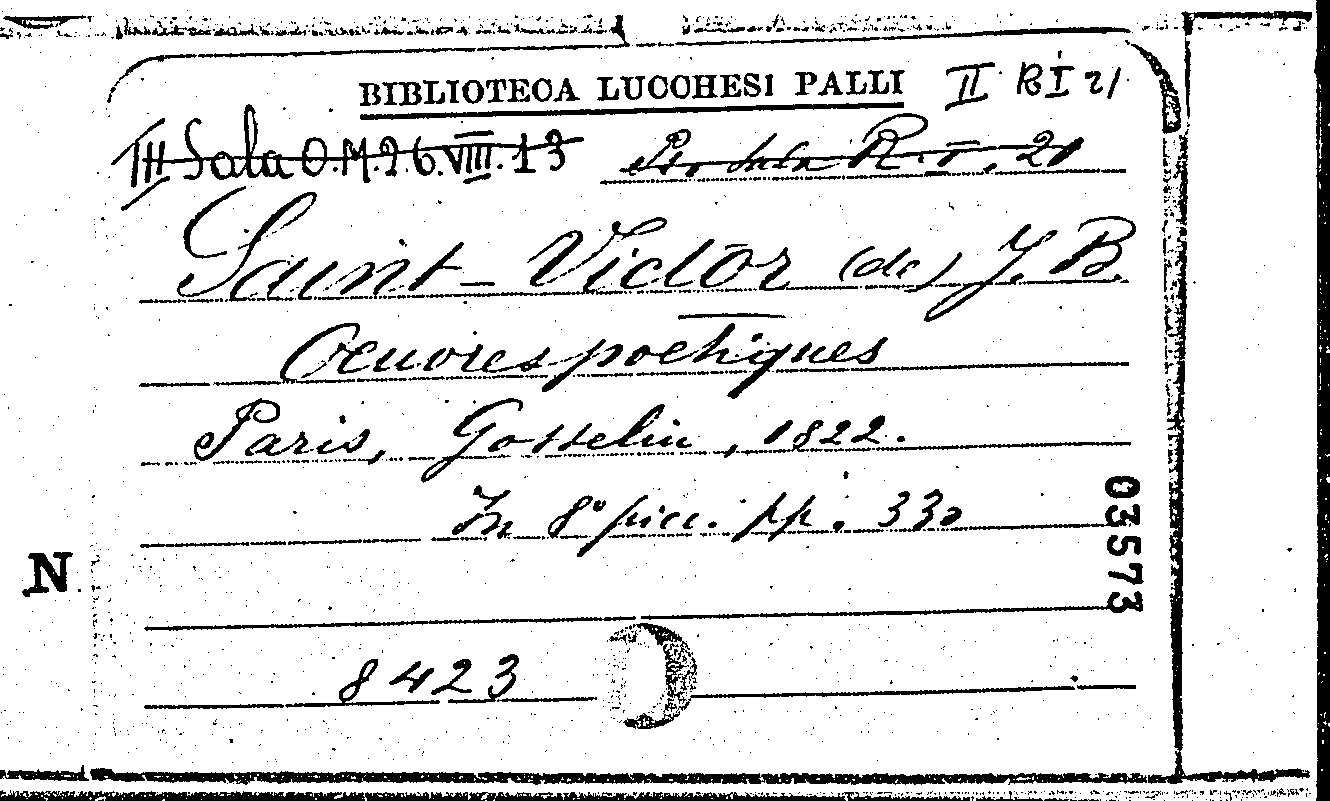 BIBLIOTECA LUCCHESI PALLI II RI 21
III Sala O.M.26.VIII.13 Sala R. I. 20
Saint-Victor (de) J. B.
Oeuvres poétiques
Paris, Gosselin, 1822.
In 8° picc. pp. 330
03573
N
8423